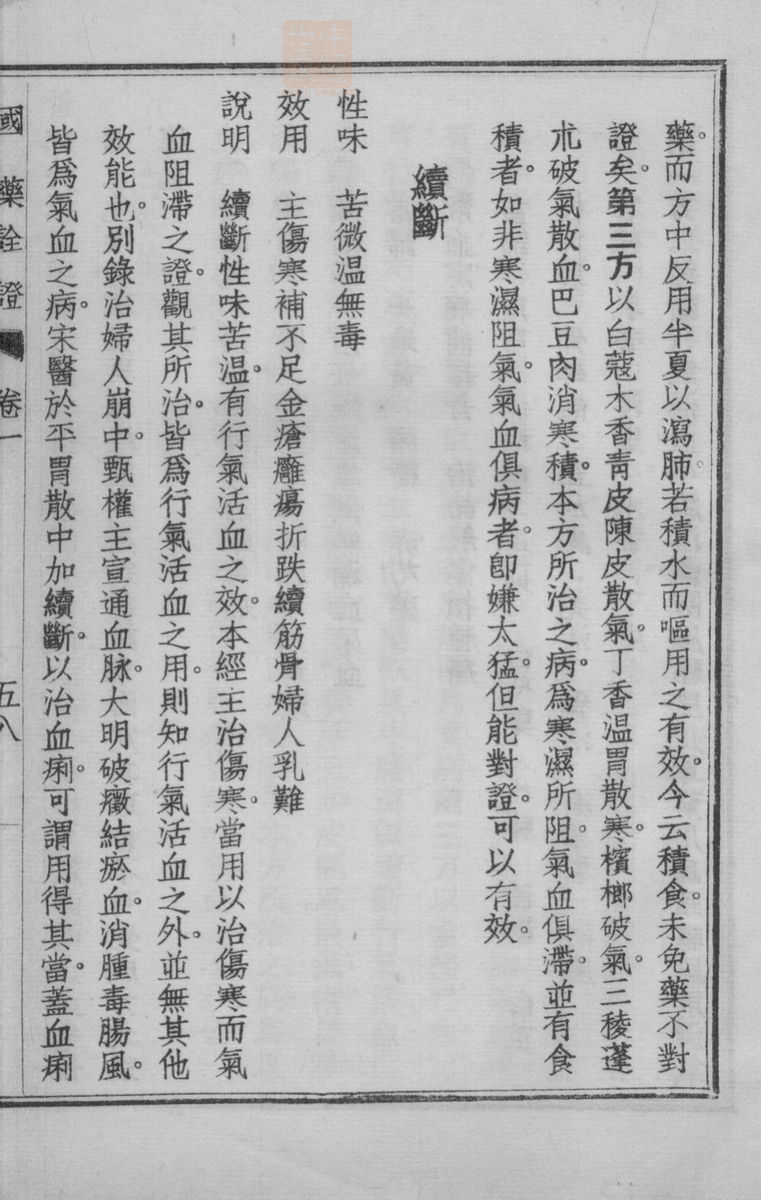 藥。而方中反用半夏以瀉肺。若積水而嘔用之有效。今云積食。未免藥不對
證矣。第三方以白蔻木香靑皮陳皮散氣。丁香温胃散寒。檳榔破氣。三稜蓬
朮破氣散血。巴豆肉消寒積。本方所治之病。爲寒濕所阻。氣血俱滯。並有食
積者。如非寒濕阻氣。氣血俱病者。卽嫌太猛。但能對證。可以有效。
續斷
性味　苦微温無毒
效用　主傷寒補不足金瘡癰瘍折跌續筋骨婦人乳難
說明　續斷性味苦温。有行氣活血之效。本經主治傷寒。當用以治傷寒而氣
血阻滯之證。觀其所治。皆爲行氣活血之用。則知行氣活血之外。並無其他
效能也。別錄治婦人崩中。甄權主宣通血脉。大明破癥結瘀血。消腫毒腸風。
皆爲氣血之病。宋醫於平胃散中加續斷。以治血痢。可謂用得其當。蓋血痢
國藥詮證　卷一　五八